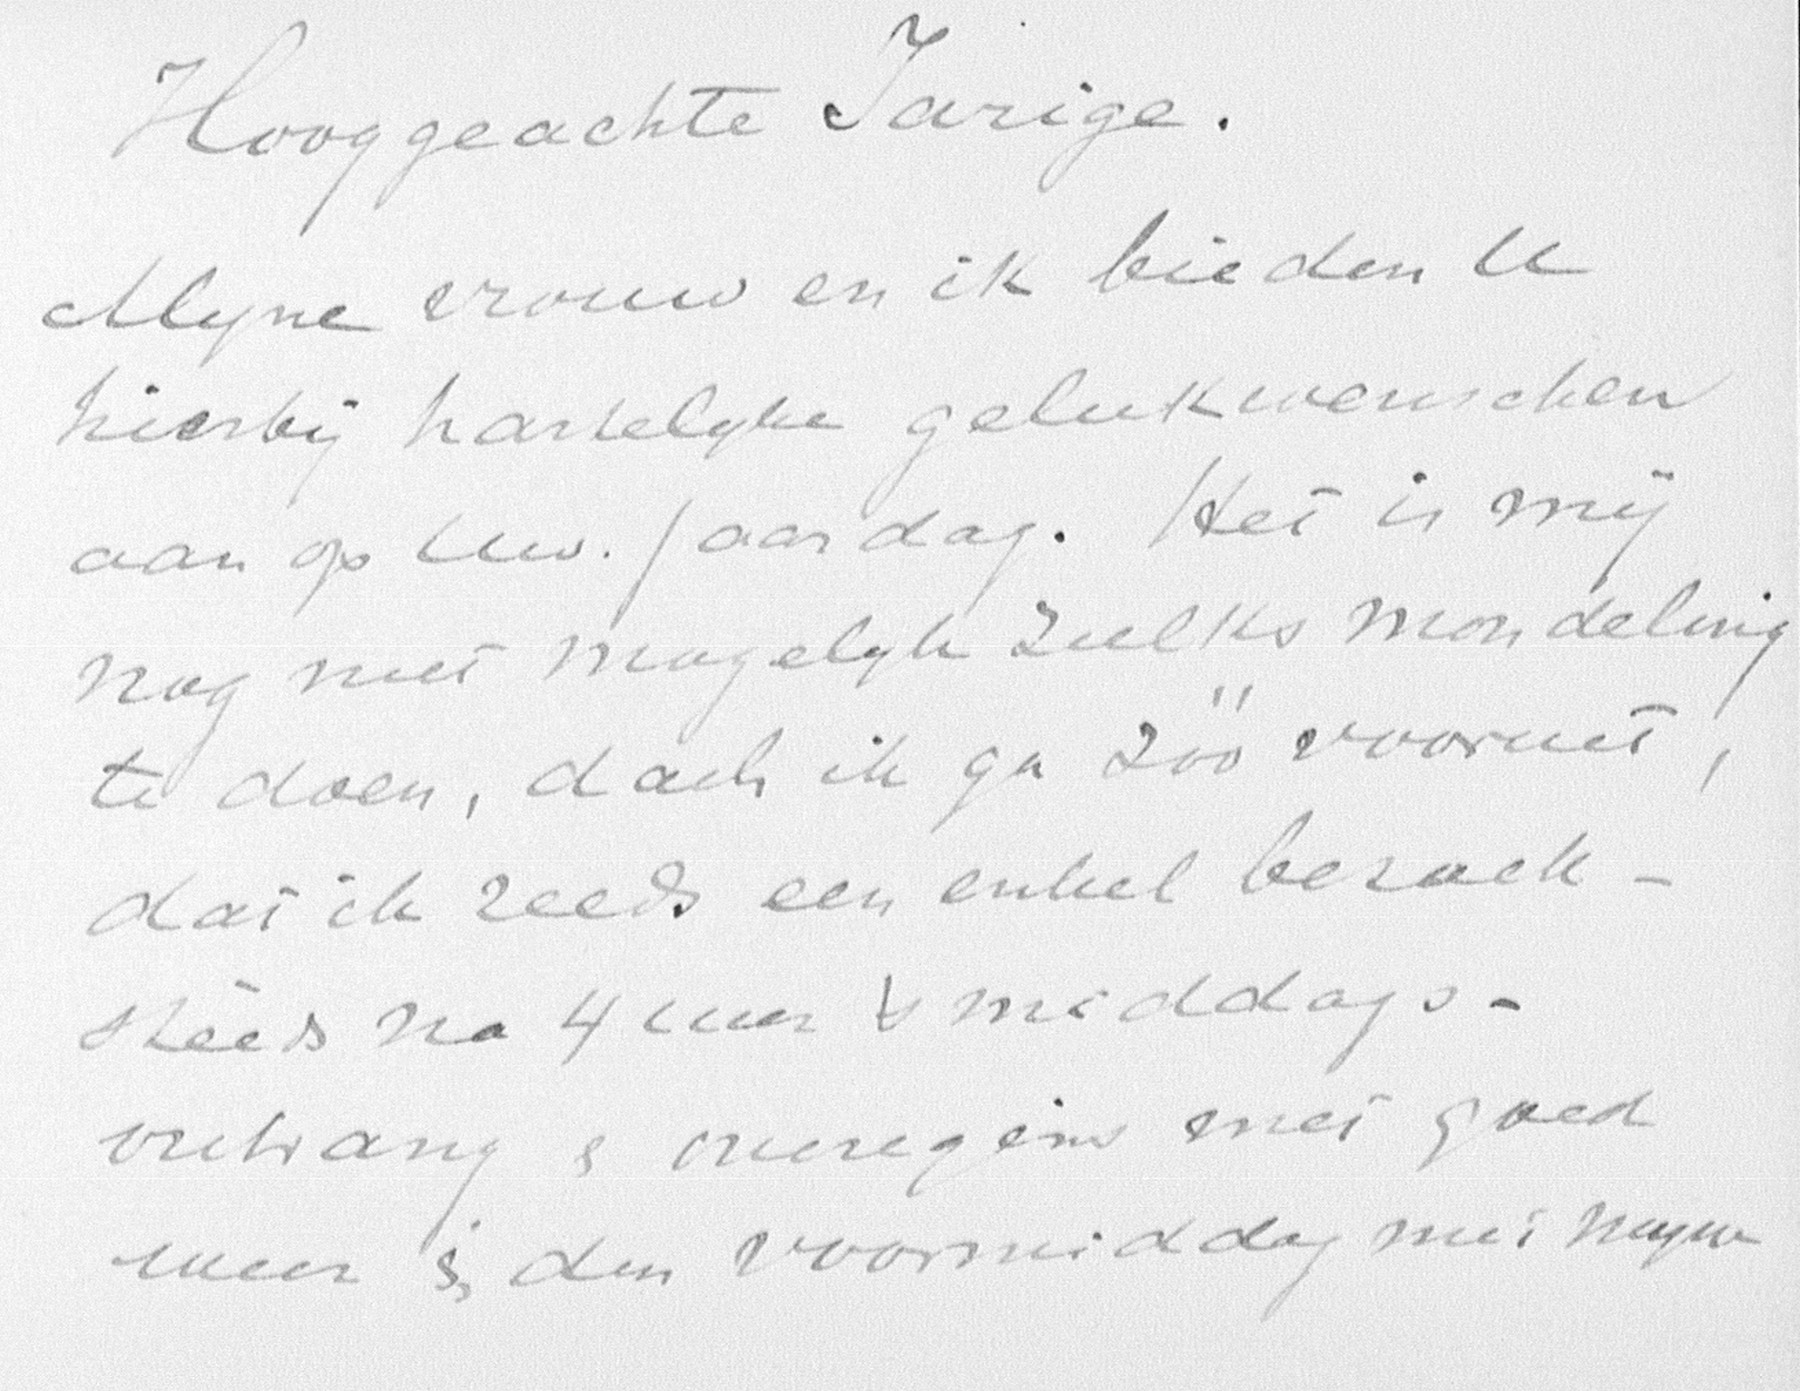 Hooggeachte Jarige.
Myne vrouw en ik bieden U
hierbij hartelyke gelukwenschen
aan op Uw. jaardag. Het is mij
nog niet mogelyk zulks mondeling
te doen, doch ik ga zóó vooruit,
dat ik reeds een enkel bezoek -
steeds na 4 uur 's middags -
ontvang & overigens met goed
weer in den voormiddag met myne